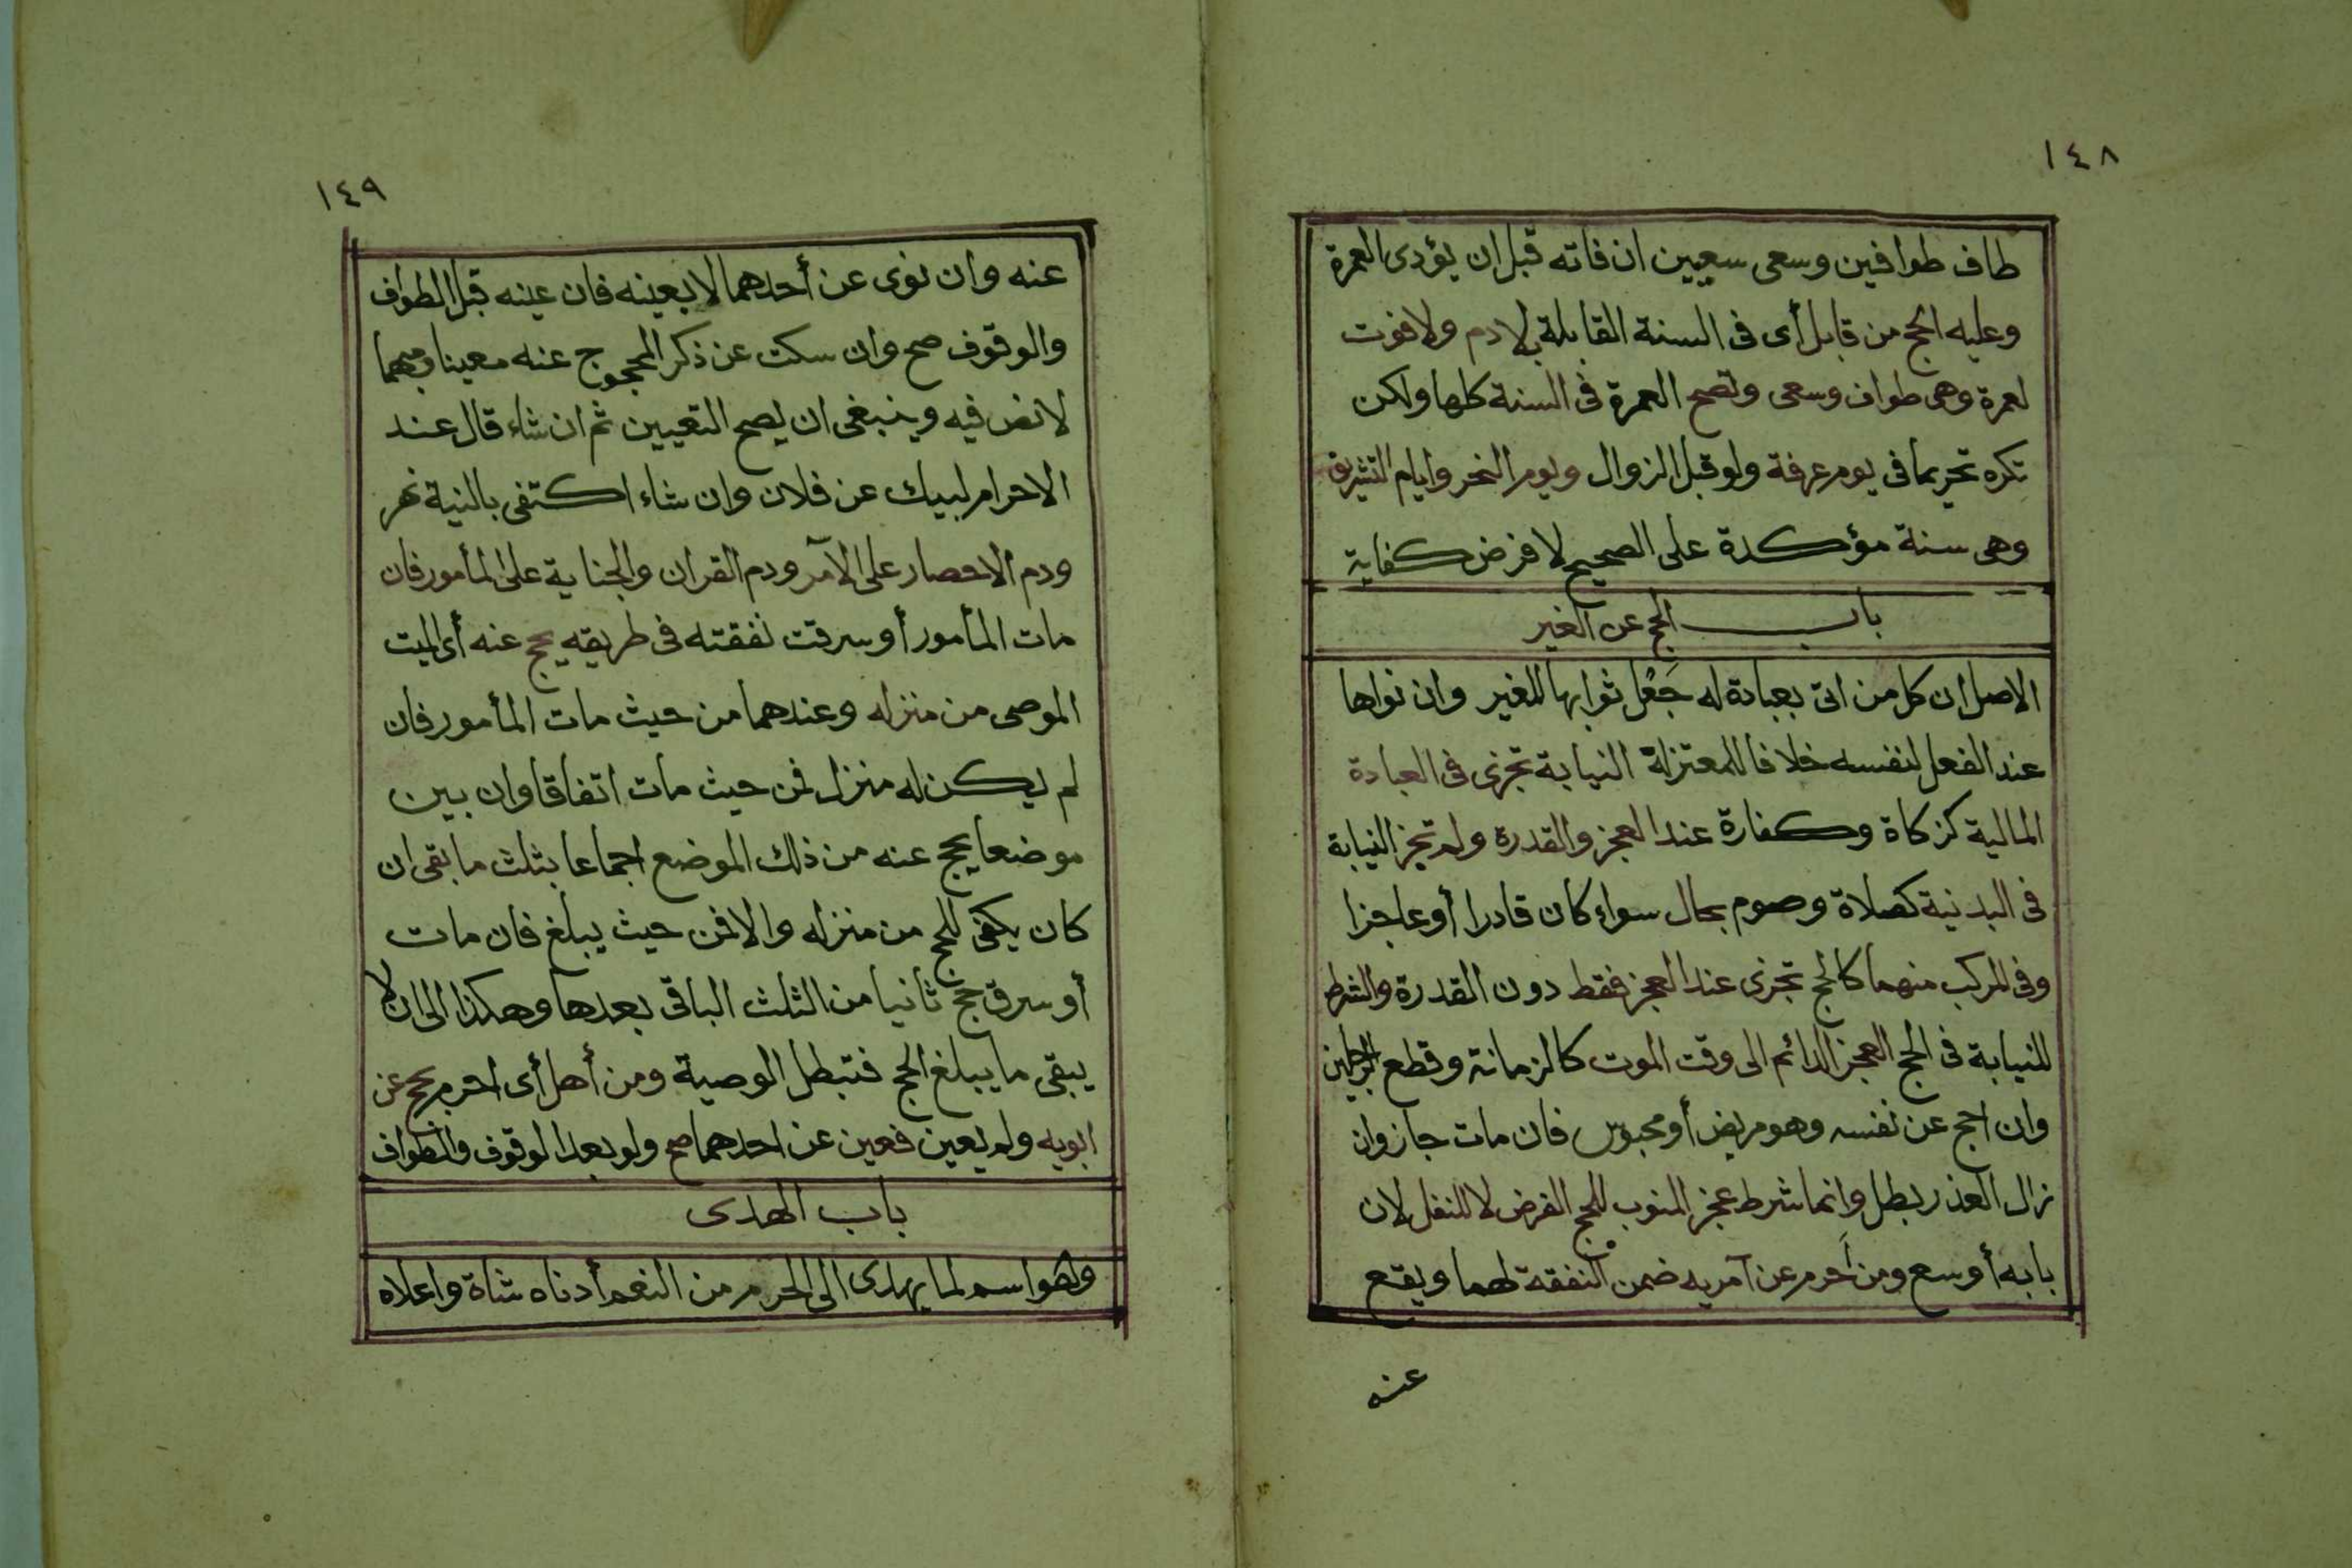 ١٤٨
طاف طوافين وسعى سعيين ان فاته قبل ان يؤدى العمرة
وعليه الحج من قابل أى فى السنة القابلة بلا دم ولا فوت
لعمرة وهى طواف وسعى وتصح العمرة فى السنة كلها ولكن
تكره تحريما فى يوم عرفة ولو قبل الزوال ويوم النحر وايام التشريق
وهى سنة مؤكدة على الصحيح لا فرض كفاية
باب الحج عن الغير
الاصل ان كل من اتى بعبادة له جَعْل ثوابها للغير وان نواها
عند الفعل لنفسه خلافا للمعتزلة النيابة تجزى فى العبادة
المالية كزكاة وكفارة عند العجز والقدرة ولم تجز النيابة
فى البدنية كصلاة وصوم بحال سواء كان قادرا أو عاجزا
وفى المركب منهما كالحج تجزى عند العجز فقط دون القدرة والشرط
للنيابة فى الحج العجز الدائم الى وقت الموت كالزمانة وقطع الرجلين
وان احج عن نفسه وهو مريض أو محبوس فان مات جاز وان
زال العذر بطل وانما شرط عجز المنوب للحج الفرض لا للنفل لان
بابه أوسع ومن أَحرم عن آمريه ضمن النفقة لهما ويقع
عنه
١٤٩
عنه وان نوى عن أحدهما لا بعينه فان عينه قبل الطواف
والوقوف صح وان سكت عن ذكر المحجوج عنه معينا ومبهما
لا نص فيه وينبغى ان يصح التعيين ثم ان شاء قال عند
الاحرام لبيك عن فلان وان شاء اكتفى بالنية نهر
ودم الاحصار على الآمر ودم القران والجناية على المأمور فان
مات المأمور أو سرقت نفقته فى طريقه يحج عنه أى الميت
الموصى من منزله وعندهما من حيث مات المأمور فان
لم يكن له منزل فمن حيث مات اتفاقا وان بين
موضعا يحج عنه من ذلك الموضع اجماعا بثلث ما بقى ان
كان يكفى للحج من منزله والا فمن حيث يبلغ فان مات
أو سرق حج ثانيا من الثلث الباقى بعدها وهكذا الى ان لا
يبقى ما يبلغ الحج فتبطل الوصية ومن أهل أى احرم بحج عن
ابويه ولم يعين فعين عن احدهما صح ولو بعد الوقوف والطواف
باب الهدى
وهو اسم لما يهدى الى الحرم من النعم أدناه شاة واعلاه